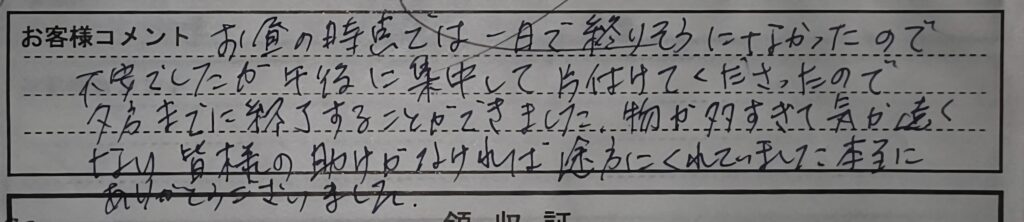 お客様コメント お昼の時点では一日で終りそうになかったので
不安でしたが午後に集中して片付けてくださったので
夕方までに終了することができました。物が多すぎて気が遠く
なり皆様の助けがなければ途方にくれていました本当に
ありがとうございました。
領収証